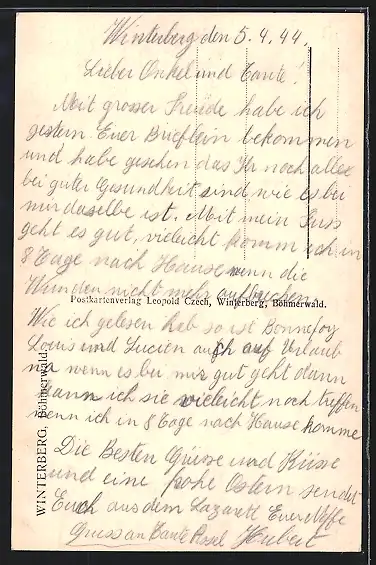 Winterberg den 5.4.44.
Lieber Onkel und Tante!
Mit grosser Freude habe ich
gestern Euer Brieflein bekommen
und habe gesehen das Ihr noch alles
bei guter Gesundheit sind wie es bei
mir daselbe ist. Mit mein Fuss
geht es gut, vieleicht komm ich in
8 Tage nach Hause wenn die
Wunden nicht mehr aufbrechen
Postkartenverlag Leopold Czech, Winterberg, Böhmerwald.
Wie ich gelesen hab so ist Bonnefoy
Louis und Lucien auch auf Urlaub
na wenn es bei mir gut geht dann
kann ich sie vieleicht noch treffen
wenn ich in 8 Tage nach Hause komme
Die Besten Grüsse und Küsse
und eine frohe Ostern sendet
Euch aus dem Lazarett Euer Neffe
Gruss an Tante Hubert
WINTERBERG, Böhmerwald.